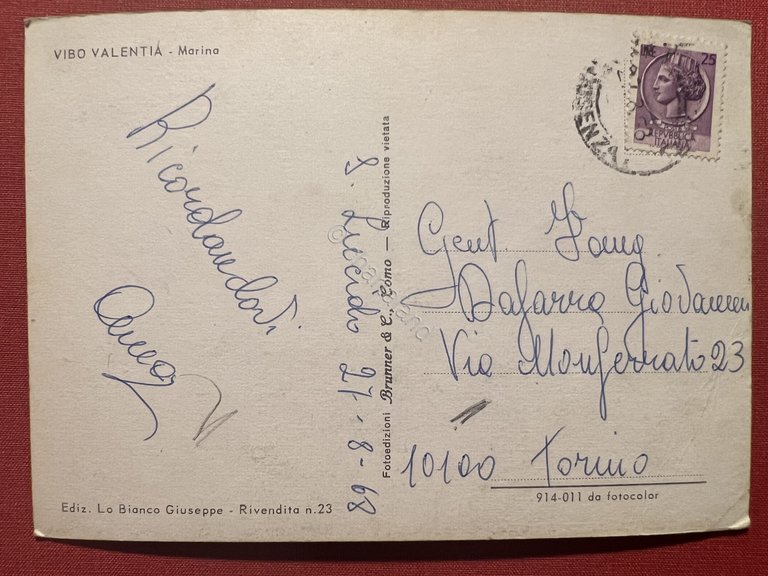 VIBO VALENTIA - Marina
Ricordandoti
Anna
S. Lucido 27-8-68
Fotoedizioni Brunner & C., Como - Riproduzione vietata
Gent. Fam
Dafarra Giovanni
Via Monferrato 23
10100 Torino
914-011 da fotocolor
Ediz. Lo Bianco Giuseppe - Rivendita n. 23
25
REPVBBLICA
ITALIANA